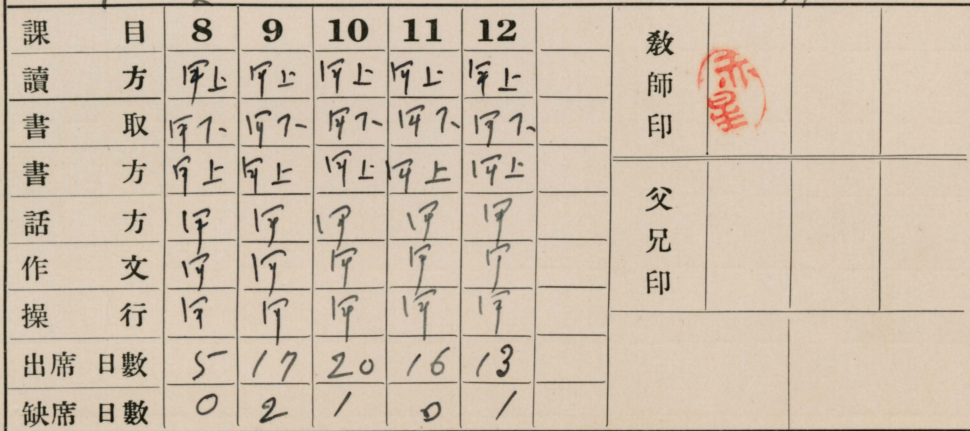 課目 8 9 10 11 12
讀方 甲上 甲上 甲上 甲上 甲上
書取 甲下 甲下 甲下 甲下 甲下
書方 甲上 甲上 甲上 甲上 甲上
話方 甲 甲 甲 甲 甲
作文 甲 甲 甲 甲 甲
操行 甲 甲 甲 甲 甲
出席日數 5 17 20 16 13
缺席日數 0 2 1 0 1
教師印
赤星
父兄印